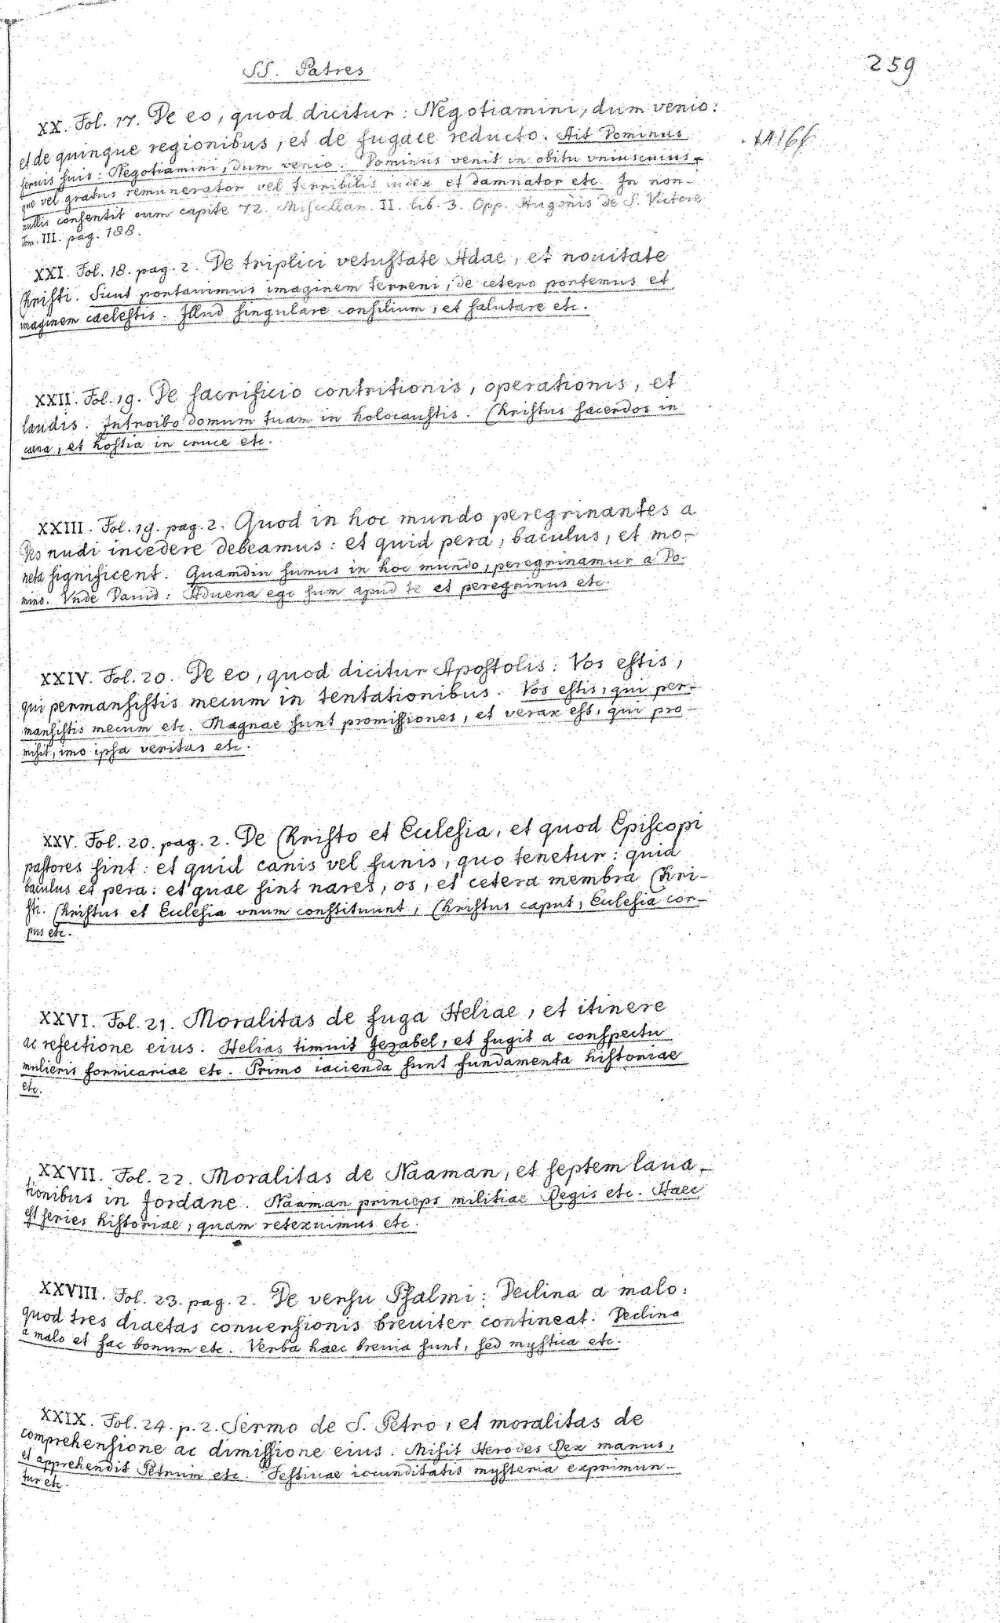 SS. Patres
259
XX. Fol. 17. De eo, quod dicitur: Negotiamini, dum venio:
et de quinque regionibus, et de fugace reducto. Ait Dominus
servis suis: Negotiamini, dum venio. Dominus venit in obitu vniuscuius-
que vel gratus remunerator vel terribilis iudex et damnator etc. In non-
nullis consentit cum capite 72. Miscellan. II. lib. 3. Opp. Hugonis de S. Victore
Tom. III. pag. 188.
XXI. Fol. 18. pag. 2. De triplici vetustate Adae, et nouitate
Christi. Sicut portauimus imaginem terreni, de cetero portemus et
imaginem caelestis. Illud singulare consilium, et salutare etc.
XXII. Fol. 19. De sacrificio contritionis, operationis, et
laudis. Introibo domum tuam in holocaustis. Christus sacerdos in
caena, et hostia in cruce etc.
XXIII. Fol. 19. pag. 2. Quod in hoc mundo peregrinantes a
Deo nudi incedere debeamus: et quid pera, baculus, et mo-
neta significent. Quamdiu sumus in hoc mundo, peregrinamur a Do-
mino. Vnde Dauid: Aduena ego sum apud te et peregrinus etc.
XXIV. Fol. 20. De eo, quod dicitur Apostolis: Vos estis,
qui permansistis mecum in tentationibus. Vos estis, qui per-
mansistis mecum etc. Magnae sunt promissiones, et verax est, qui pro-
misit, imo ipsa veritas etc.
XXV. Fol. 20. pag. 2. De Christo et Eclesia, et quod Episcopi
pastores sint: et quid canis vel funis, quo tenetur: quid
baculus et pera: et quae sint nares, os, et cetera membra Chri-
sti. Christus et Eclesia vnum constituunt, Christus caput, Eclesia cor-
pus etc.
XXVI. Fol. 21. Moralitas de fuga Heliae, et itinere
ac refectione eius. Helias timuit Jezabel, et fugit a conspectu
mulieris fornicariae etc. Primo iacienda sunt fundamenta historiae
etc.
XXVII. Fol. 22. Moralitas de Naaman, et septem laua-
tionibus in Jordane. Naaman princeps militiae Regis etc. Haec
est series historiae, quam retexuimus etc.
XXVIII. Fol. 23. pag. 2. De versu Psalmi: Declina a malo:
quod tres diaetas conuersionis breuiter contineat. Declina
a malo et fac bonum etc. Verba haec breuia sunt, sed mystica etc.
XXIX. Fol. 24. p. 2. Sermo de S. Petro, et moralitas de
comprehensione ac dimissione eius. Misit Herodes Rex manus,
et apprehendit Petrum etc. Festiuae iocunditatis mysteria exprimun-
tur etc.